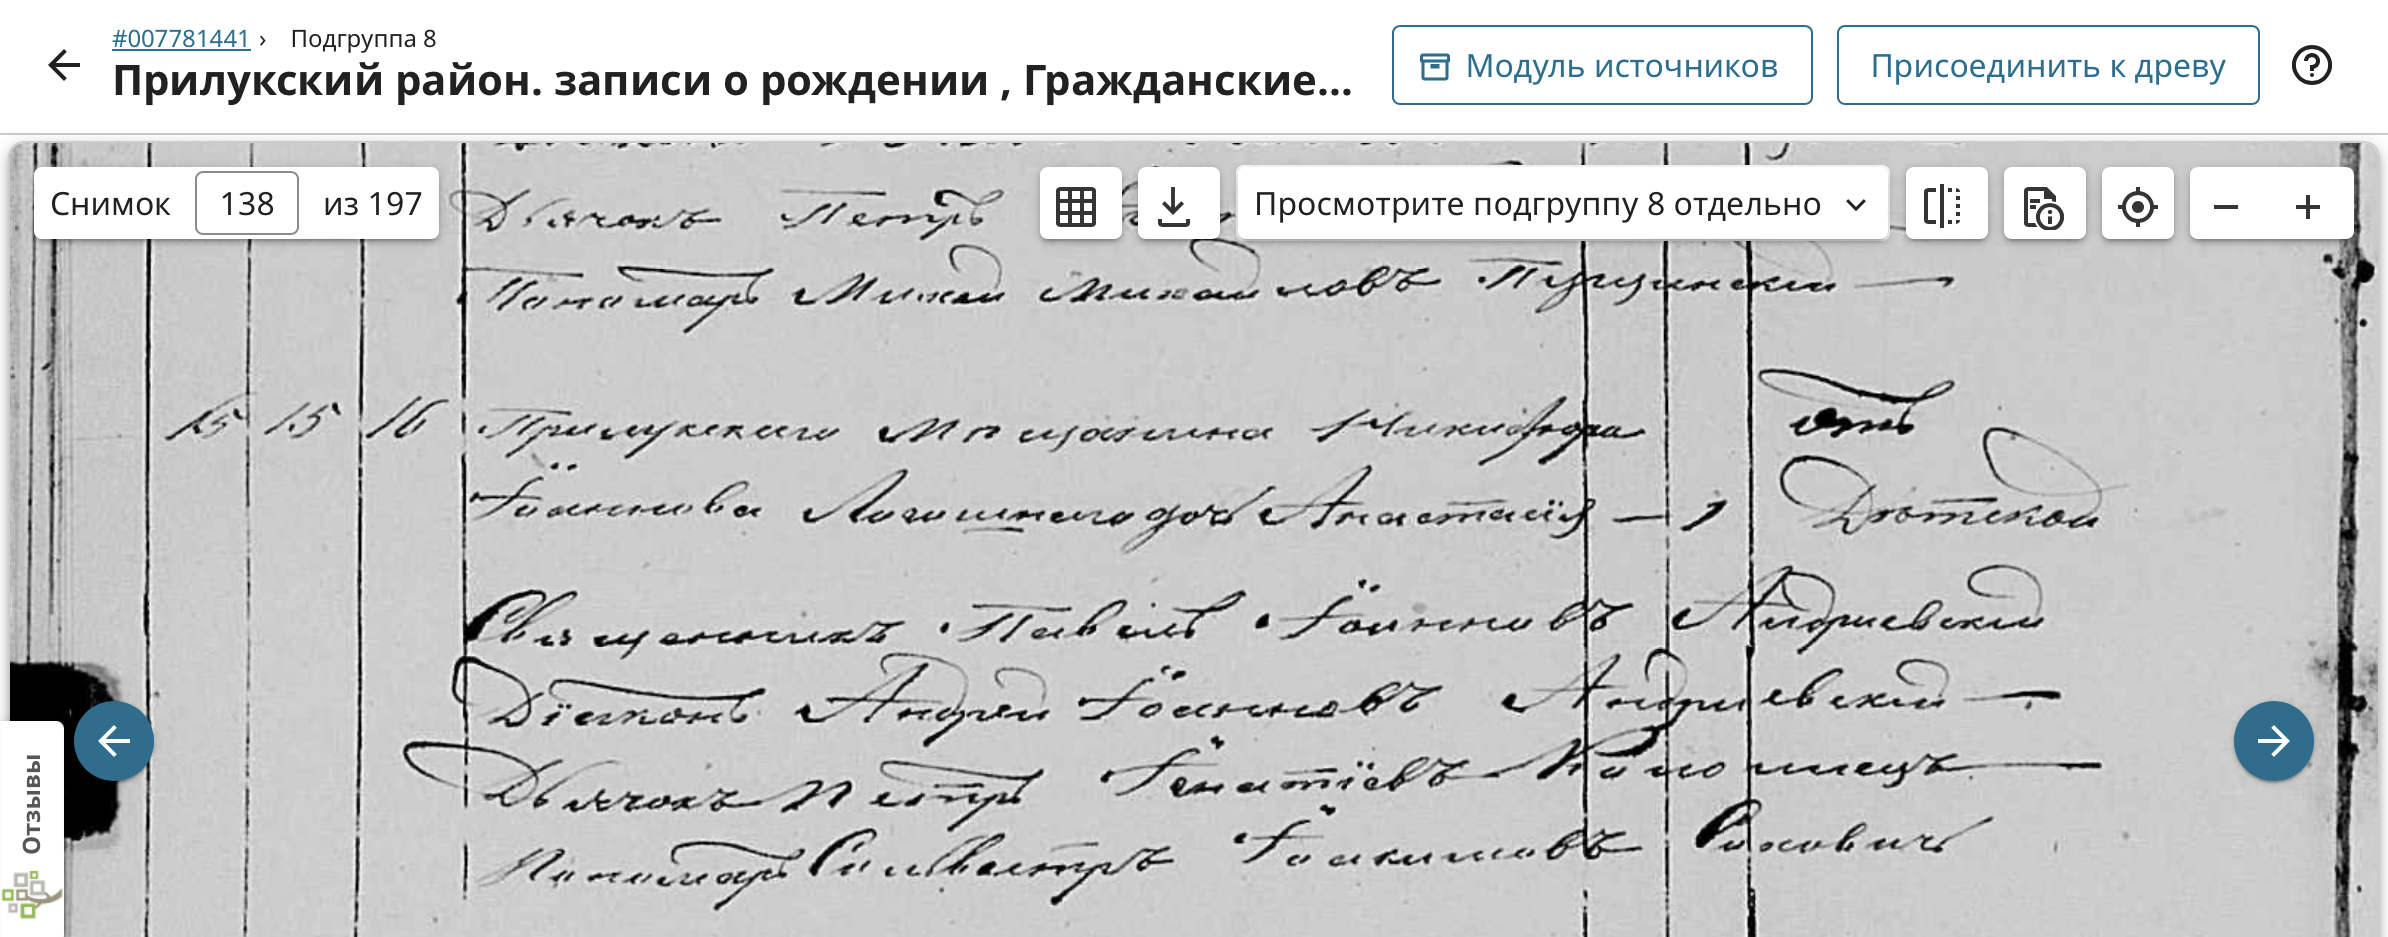 #007781441 › Подгруппа 8
Прилукский район. записи о рождении , Гражданские...
Модуль источников
Присоединить к древу
Снимок 138 из 197
Просмотрите подгруппу 8 отдельно
Дьячокъ Петръ
Пономарь Михаи Михаиловъ
15 15 16 Прилукскаго Мѣщанина Никифора
Іоаннова дочь Анастасія — 1
отъ
Дѣтской
Священникъ Павелъ Іоанновъ Андриевскій
Діаконъ Андрей Іоанновъ Андриевскій —
Дьячокъ Петръ Ігнатіевъ —
Пономарь Силвестръ Іоакимовъ
Отзывы